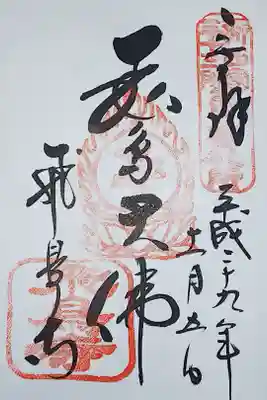 奉拝
平成二十九年
十一月五日
飛鳥大佛
飛鳥寺